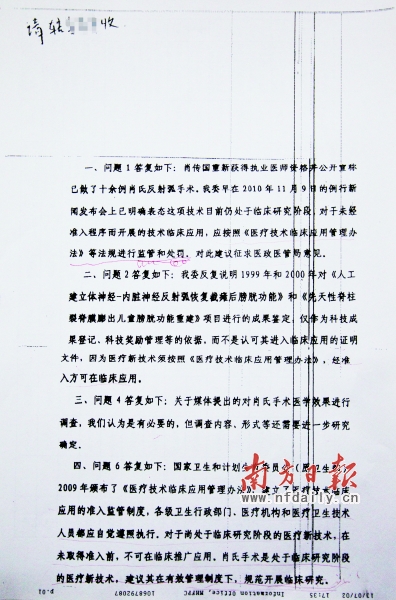 请转 收
一、问题1答复如下：肖传国重新获得执业医师资格并公开宣称
已做了十余例肖氏反射弧手术。我委早在2010年11月9日的例行新
闻发布会上已明确表态这项技术目前仍处于临床研究阶段，对于未经
准入程序而开展的技术临床应用，应按照《医疗技术临床应用管理办
法》等法规进行监管和处罚。对此建议征求医政医管局意见。
二、问题2答复如下：我委反复说明1999年和2000年对《人工
建立体神经-内脏神经反射弧恢复截瘫后膀胱功能》和《先天性脊柱
裂脊膜膨出儿童膀胱功能重建》项目进行的成果鉴定，仅作为科技成
果登记、科技奖励管理等的依据，而不是认可其进入临床应用的证明
文件，因为医疗新技术须按照《医疗技术临床应用管理办法》，经准
入方可在临床应用。
三、问题4答复如下：关于媒体提出的对肖氏手术医学效果进行
调查，我们认为是有必要的，但调查内容、形式等还需要进一步研究
确定。
四、问题6答复如下：国家卫生和计划生育委员会（原卫生部）
2009年颁布了《医疗技术临床应用管理办法》，建立了医疗技术临床
应用的准入监管制度，各级卫生行政部门、医疗机构和医疗卫生技术
人员都应自觉遵照执行。对于尚处于临床研究阶段的医疗新技术，在
未取得准入前，不可在临床推广应用。肖氏手术是处于临床研究阶段
的医疗新技术，建议其在有效管理制度下，规范开展临床研究。
南方日报
www.nfdaily.cn
13/07/02 17:35 1068792087 Information Office, NHFPC p.01